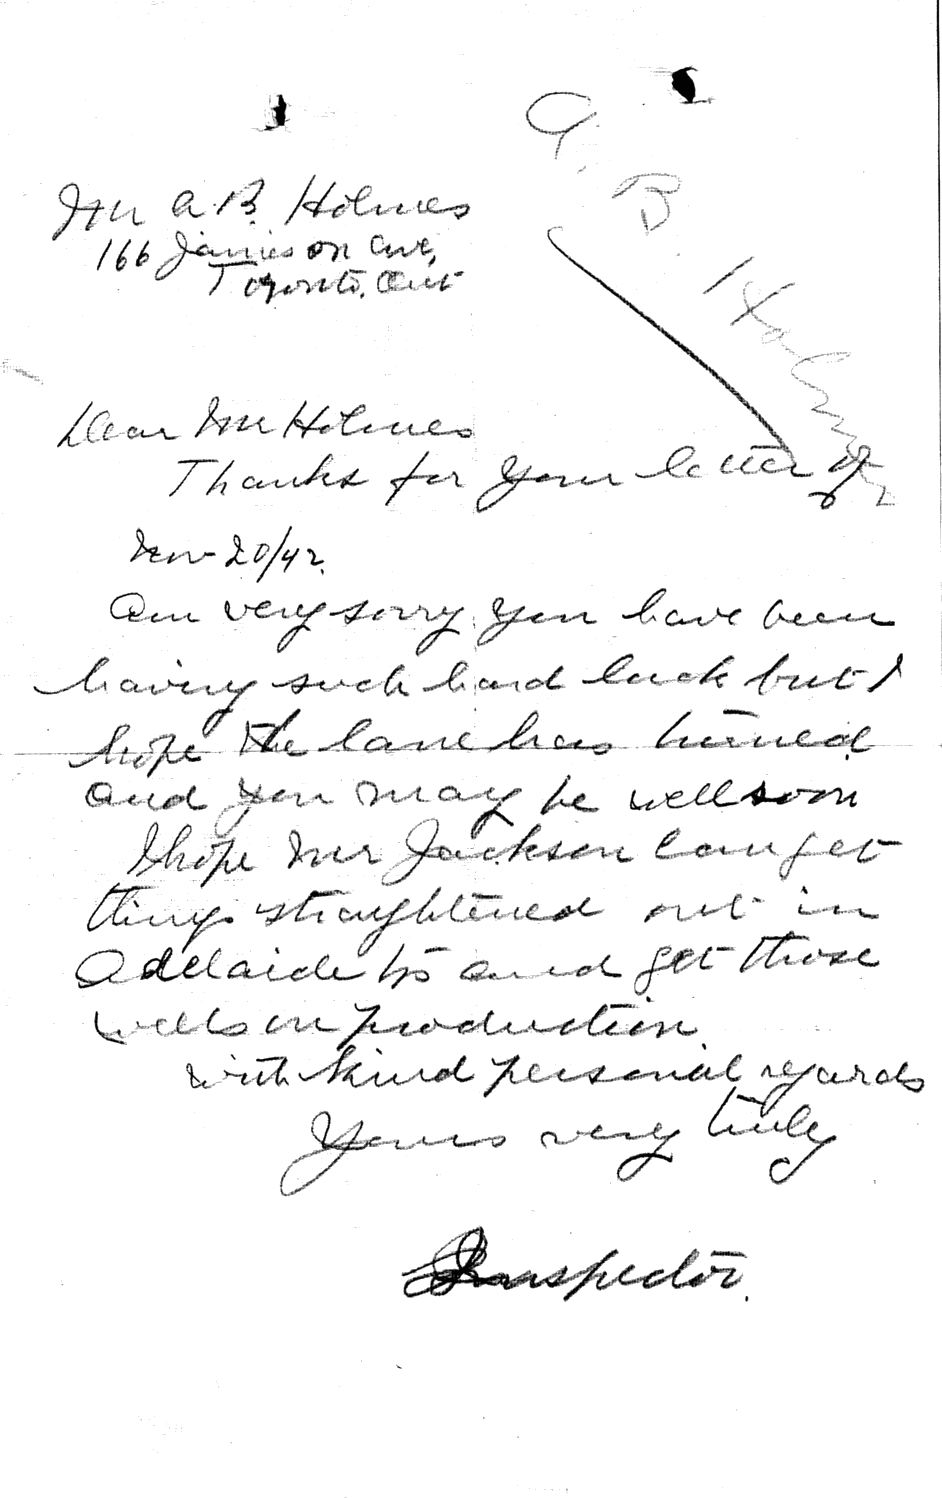 A. B. Holmes
Mr A. B. Holmes
166 Jamieson Ave,
Toronto, Ont
Dear Mr Holmes
Thanks for your letter of
Nov 20/42.
Am very sorry you have been
having such hard luck but I
hope the lane has turned
and you may be well soon
I hope Mr Jackson can get
things straightened out in
Adelaide Tp and get those
wells in production
with kind personal regards
Yours very truly
Inspector.